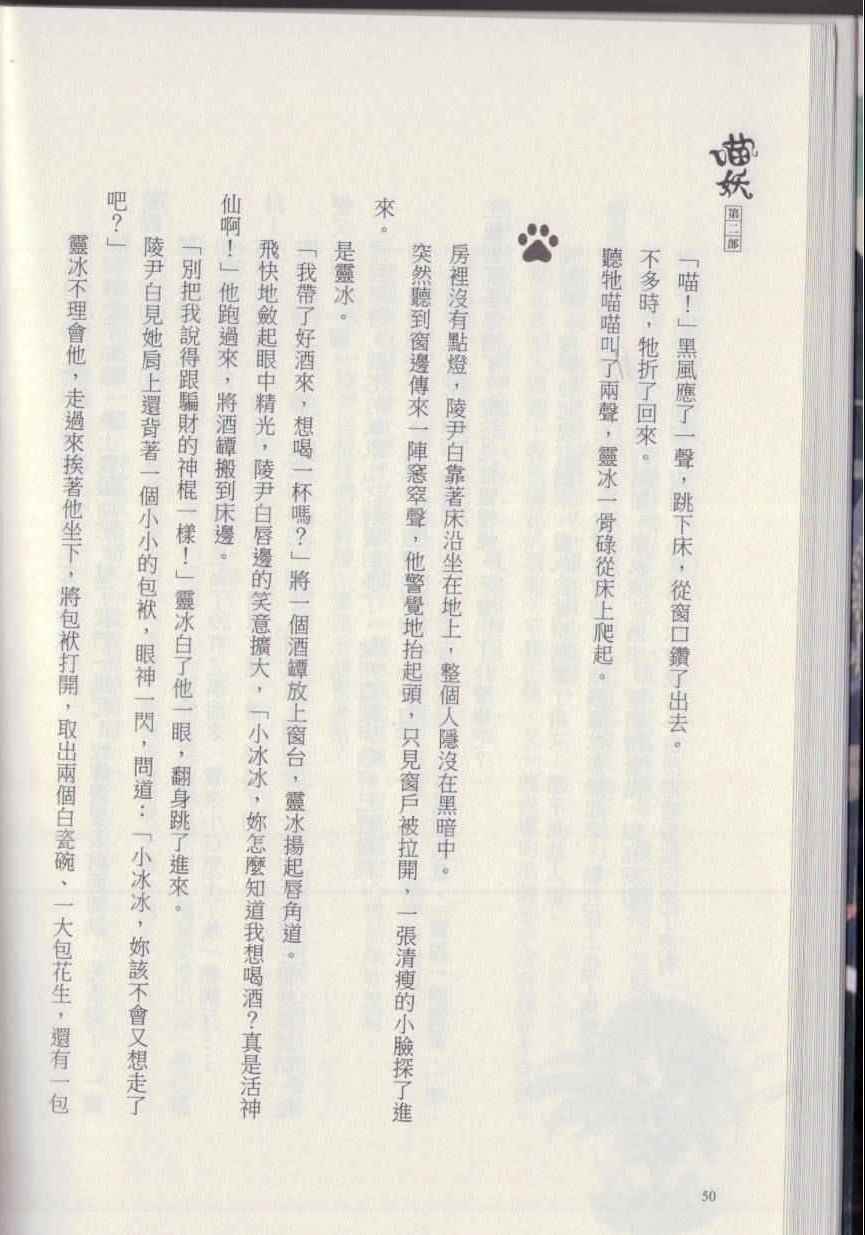 喵妖
第二部
「喵！」黑風應了一聲，跳下床，從窗口鑽了出去。
不多時，牠折了回來。
聽牠喵喵叫了兩聲，靈冰一骨碌從床上爬起。
房裡沒有點燈，陵尹白靠著床沿坐在地上，整個人隱沒在黑暗中。
突然聽到窗邊傳來一陣窸窣聲，他警覺地抬起頭，只見窗戶被拉開，一張清瘦的小臉探了進
來。
是靈冰。
「我帶了好酒來，想喝一杯嗎？」將一個酒罈放上窗台，靈冰揚起唇角道。
飛快地斂起眼中精光，陵尹白唇邊的笑意擴大，「小冰冰，妳怎麼知道我想喝酒？真是活神
仙啊！」他跑過來，將酒罈搬到床邊。
「別把我說得跟騙財的神棍一樣！」靈冰白了他一眼，翻身跳了進來。
陵尹白見她肩上還背著一個小小的包袱，眼神一閃，問道：「小冰冰，妳該不會又想走了
吧？」
靈冰不理會他，走過來挨著他坐下，將包袱打開，取出兩個白瓷碗、一大包花生，還有一包
50